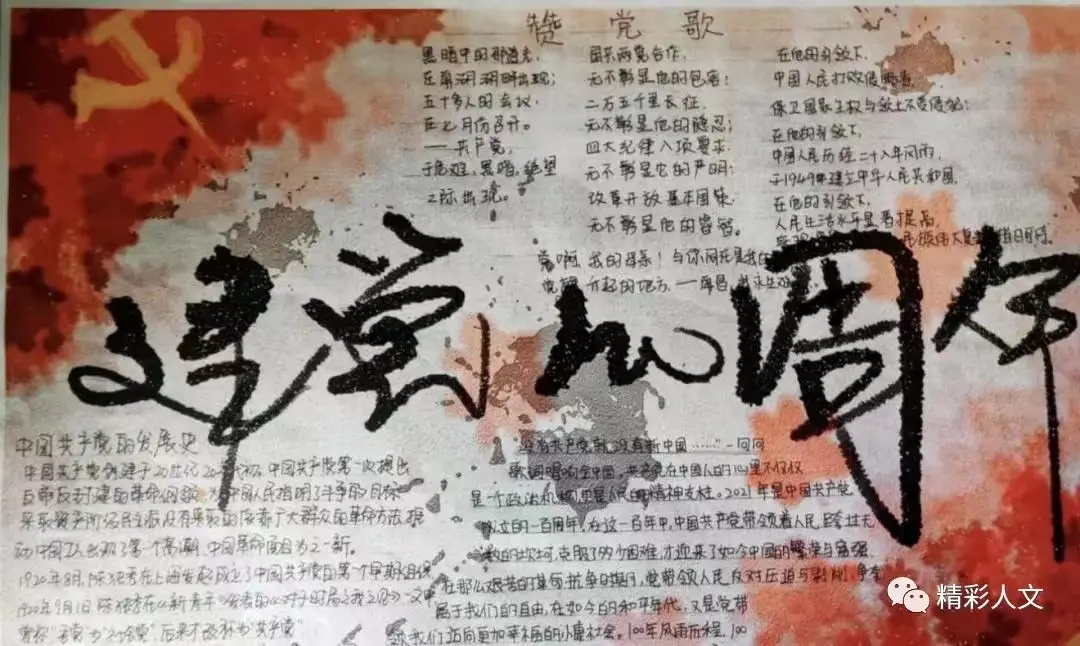 赞党歌
黑暗中的那道光,
五十多人的会议,
在七月份召开。
——共产党,
于危难,黑暗,绝望
之际出现。
国共两党合作,
无不彰显他的包容;
二万五千里长征,
无不彰显他的隐忍;
四大纪律八项要求
无不彰显它的严明;
改革开放基本国策
无不彰显他的睿智。
在他的引领下,
中国人民打败侵略者,
保卫国家主权与领土不受侵犯;
在他的引领下,
中国人民历经二十八年风雨,
于1949年建立中华人民共和国,
在他的引领下,
人民生活水平显著提高,
党啊,我的母亲!与你同在是我
升起的地方,——
建党100周年
中国共产党的发展史
中国共产党创建于20世纪20年代初,中国共产党第一次提出
反帝反封建的革命纲领,为中国人民指明了斗争的目标
采取资产阶级民主派没有采取的依靠广大群众的革命方法,
动中国工人出现了第一个高潮,中国革命面目为之一新。
1920年8月,陈独秀在上海发起成立了中国共产党的第一个早期组织
1920年9月1日,陈独秀在《新青年》发表的《对于时局之我见》一文中
后来才改称为"共产党"
没有共产党就没有新中国……"一问问
歌词唱响全中国,共产党在中国人的心里不仅仅
是一个政治机构更是人民的精神支柱。2021年是中国共产党
成立的一百周年,在这一百年中,中国共产党带领着人民,跨过无
数的坎坷,克服了多少困难,才迎来了如今中国的繁荣与富强
在那么艰苦的革命抗争日期间,党带领人民反对压迫与剥削,争夺
属于我们的自由,在如今的和平年代,又是党带
领我们迈向更加幸福的小康社会。100年风雨历程,100
精彩人文